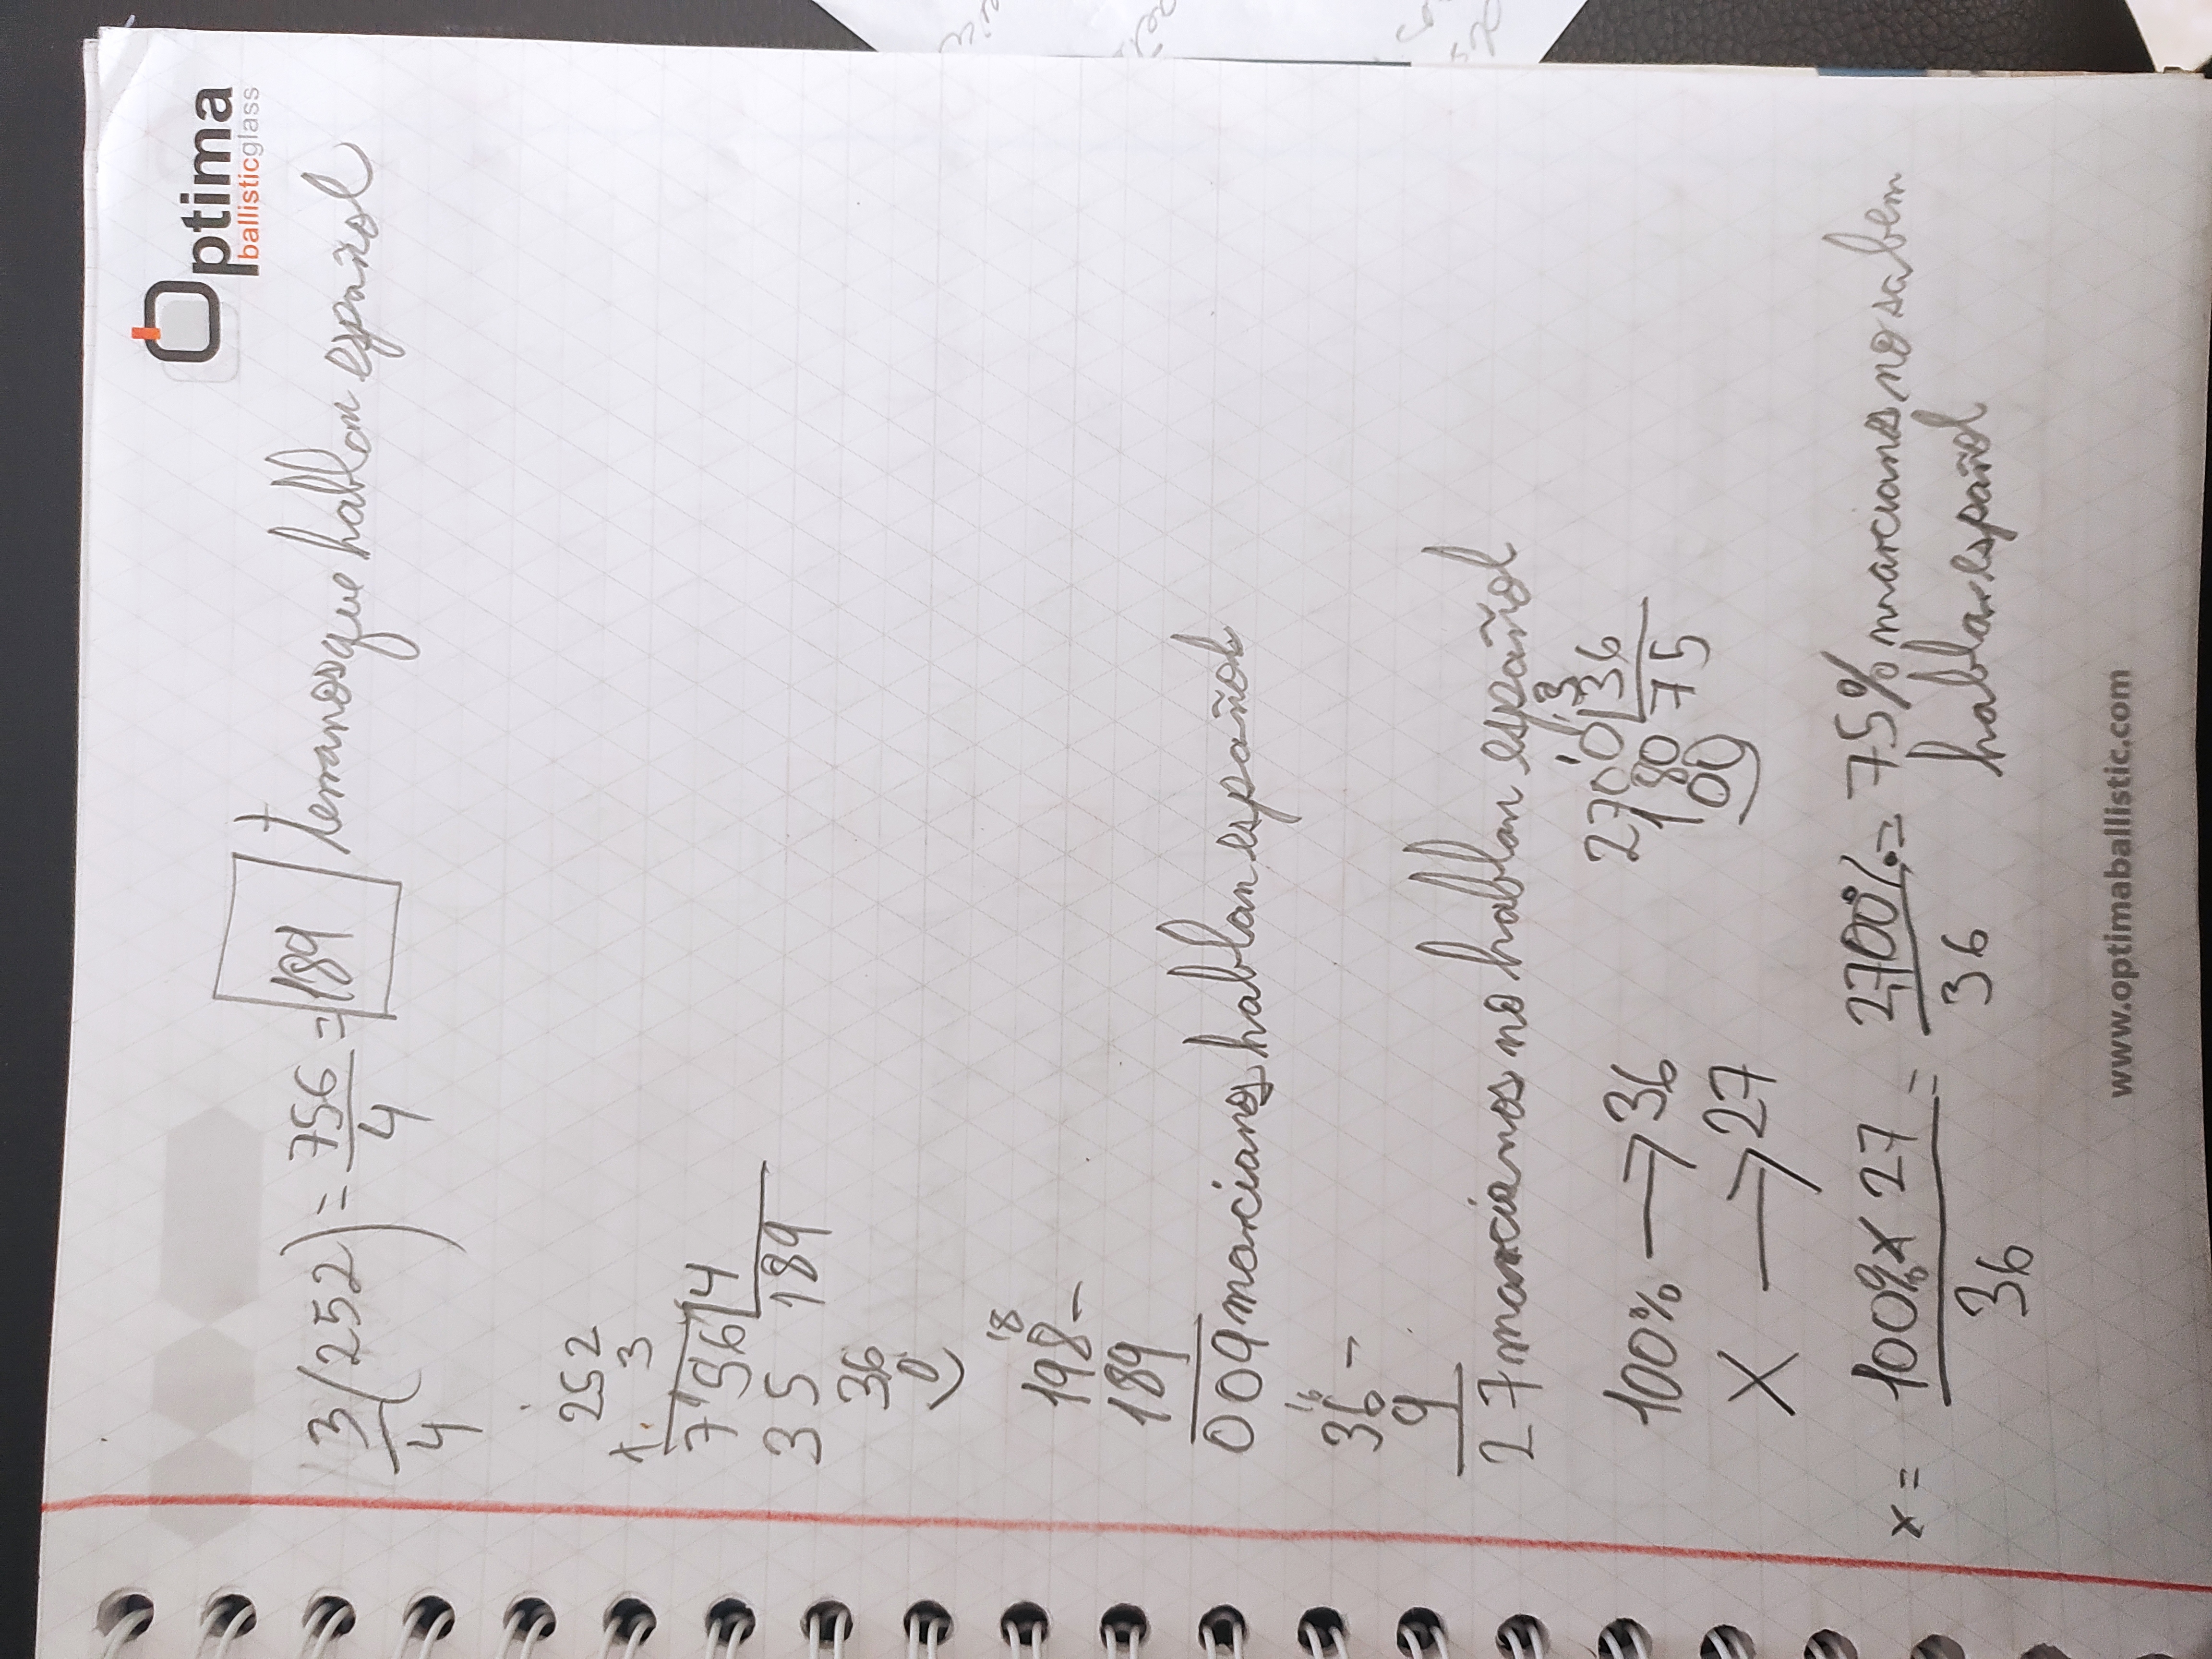 Optima
ballisticglass
3/4 (252) = 756/4 = 189 terranos que hablan español
252
x 3
756 4
35 189
36
0
18
198 -
189
009 marcianos hablan español
16
36 -
9
27 marcianos no hablan español
100% → 36
X → 27
2700 36
180 75
00
x = 100% x 27 / 36 = 2700% / 36 = 75% marcianos no saben
hablar español
www.optimaballistic.com